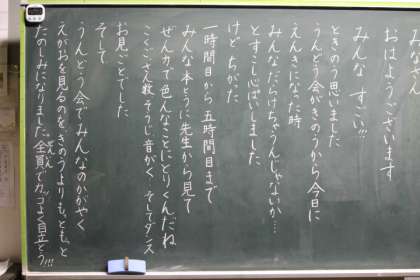 みなさん
おはようございます
みんな すごい!!!
ときのう思いました
うんどう会がきのうから今日に
えんきになった時
みんなだらけちゃうんじゃないか…
とすこし心ぱいしました
けど ちがた
一時間目から 五時間目まで
みんな本とうに先生から見て
ぜん力で色んなことにとりくんだね
こくご さん数 そうじ 音がく そしてダンス
お見ごとでした
そして
うんどう会でみんなのかがやく
えがおを見るのを、きのうよりも、もっと
たのしみになりました。全員でカッコよく目立とう!!!
ぜんいん